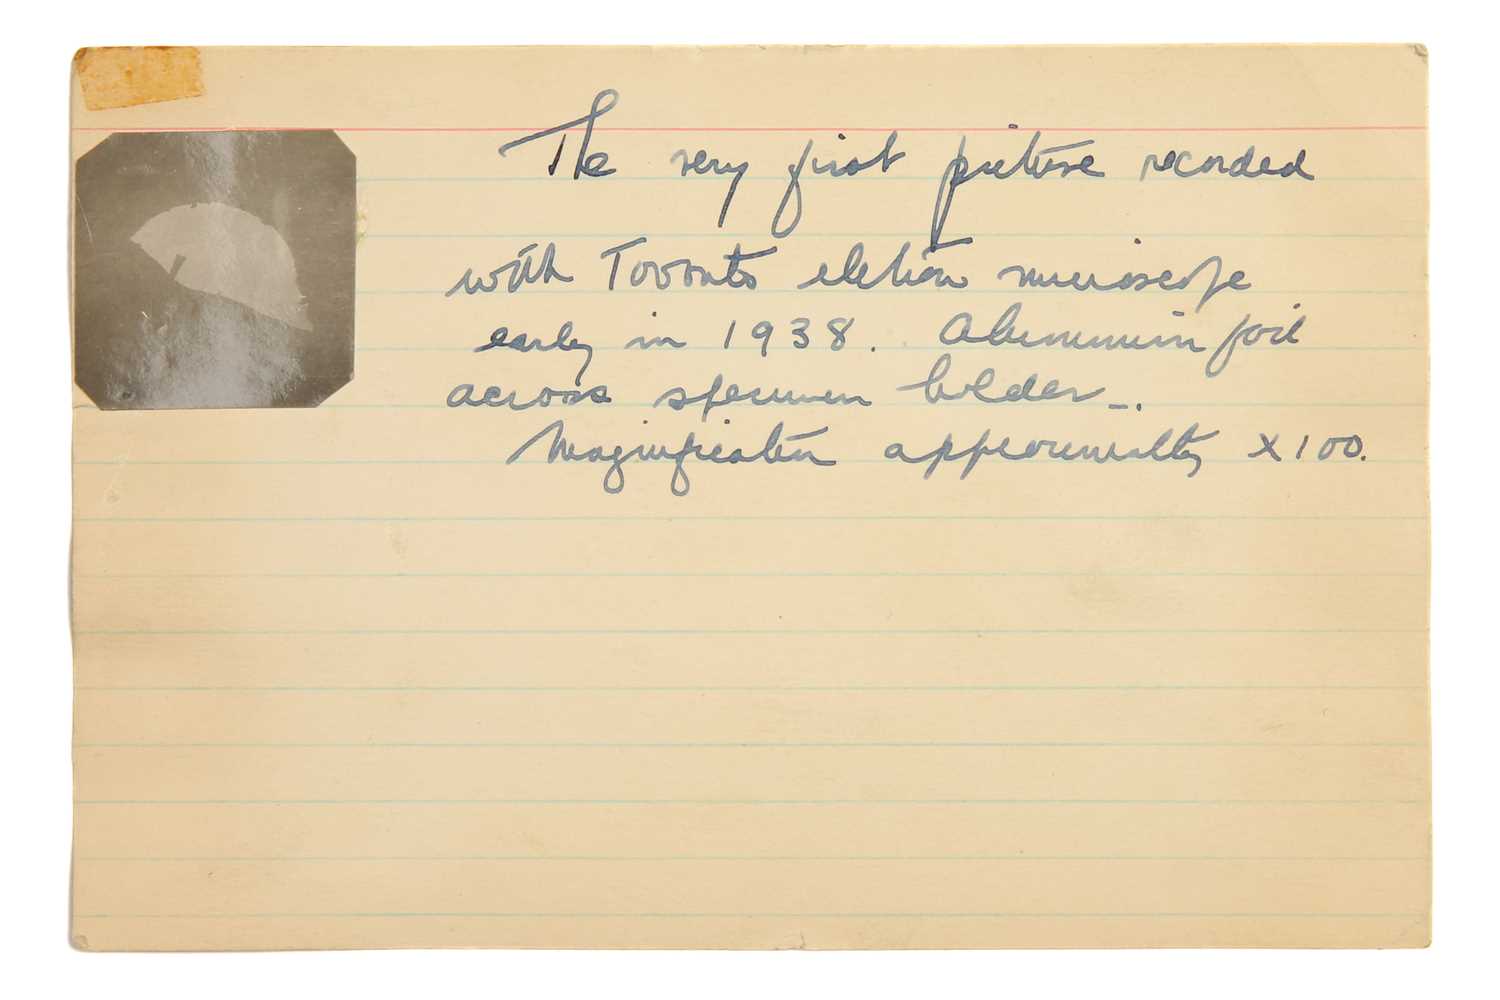 The very first picture recorded
with Toronto electron microscope
early in 1938. Aluminium foil
across specimen holder -.
Magnification approximately X100.